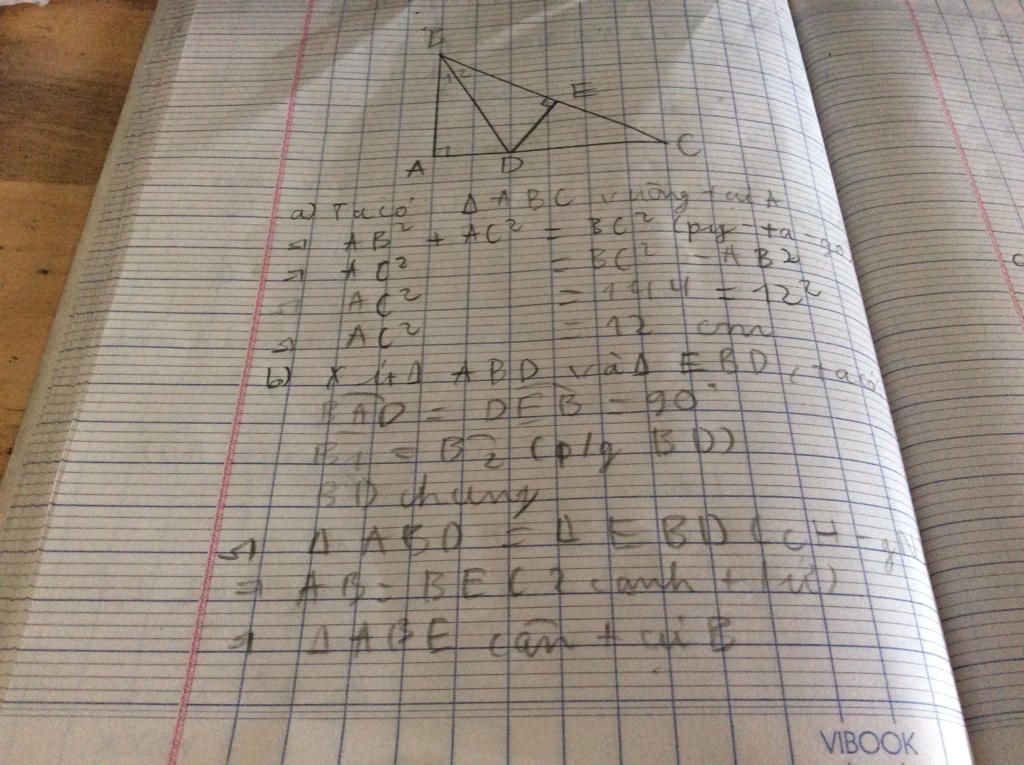 B
1 2
E
A
1
D
C
a) Ta có ΔABC vuông tại A
=> AB² + AC² = BC² (py-ta-go)
=> AC² = BC² - AB²
=> AC² = 144 = 12²
=> AC² = 12 cm
b) Xét Δ ABD và Δ EBD, ta có
BAD = DEB = 90°
B1 = B2 (p/g BD)
BD chung
=> Δ ABD = Δ EBD (CH-gn
=> AB = BE (2 cạnh t/ứ)
=> ΔABE cân tại B
VIBOOK